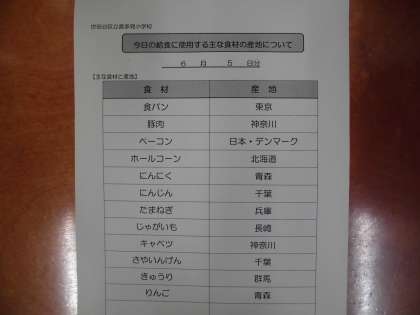 世田谷区立喜多見小学校
今日の給食に使用する主な食材の産地について
6 月 5 日分
【主な食材と産地】
食 材 産 地
食パン 東京
豚肉 神奈川
ベーコン 日本・デンマーク
ホールコーン 北海道
にんにく 青森
にんじん 千葉
たまねぎ 兵庫
じゃがいも 長崎
キャベツ 神奈川
さやいんげん 千葉
きゅうり 群馬
りんご 青森